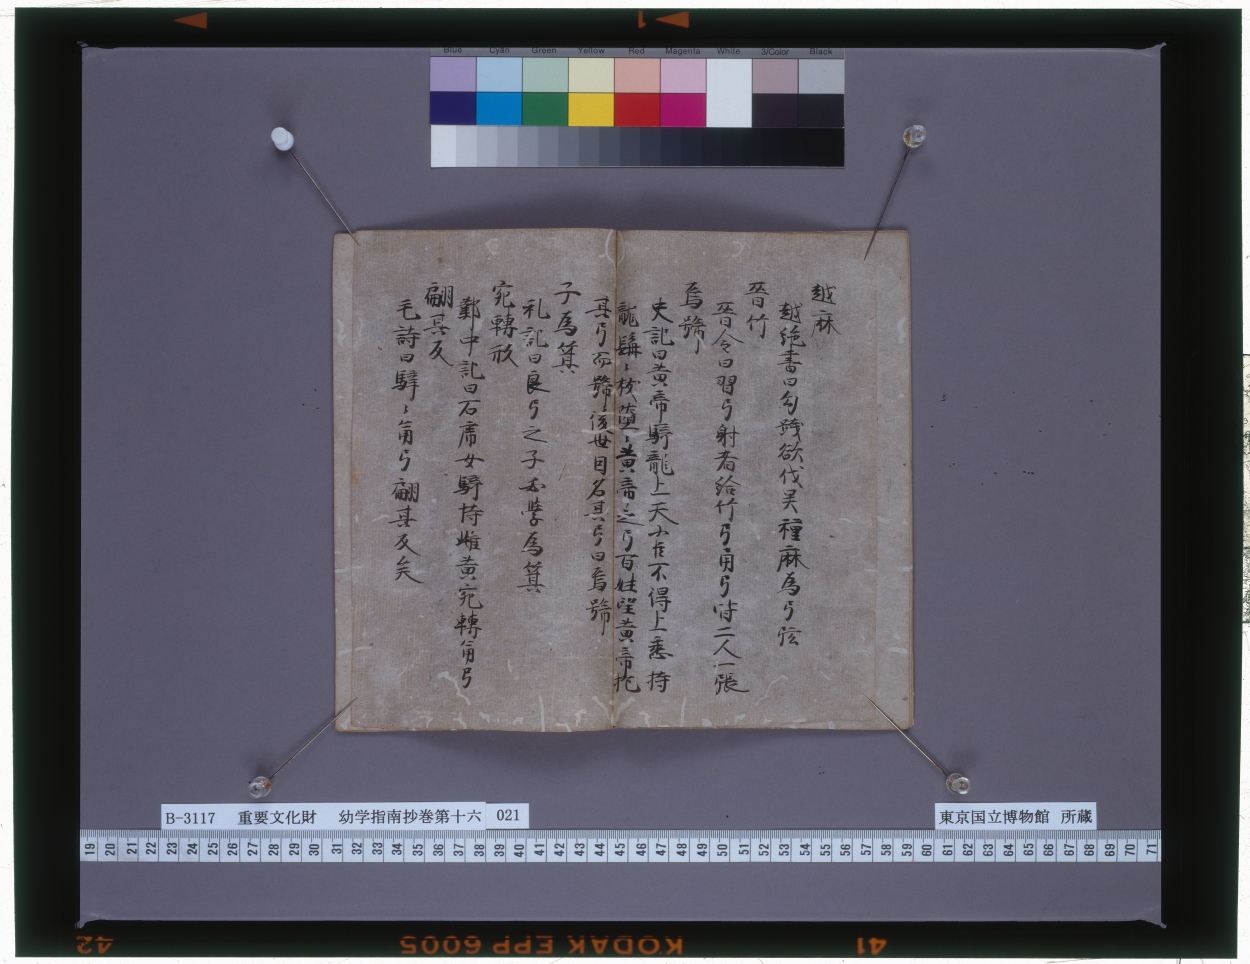 Blue Cyan Green Yellow Red Magenta White 3/Color Black
越麻
越絶書曰勾践欲伐吴種麻為弓弦
晉竹
晉令曰習弓射者給竹弓角弓皆二人一張
烏號
史記曰黄帝騎龍上天小臣不得上悉持
龍髯〻抜堕〻黄帝之弓百姓望黄帝抱
其弓而號後世因名其弓曰烏號
子為箕
礼記曰良弓之子必學為箕
宛轉
鄴中記曰石席女騎持雌黄宛轉角弓
翩其反
毛詩曰騂〻角弓翩其反矣
B-3117 重要文化財 幼学指南抄巻第十六 021
東京国立博物館 所蔵
19 20 21 22 23 24 25 26 27 28 29 30 31 32 33 34 35 36 37 38 39 40 41 42 43 44 45 46 47 48 49 50 51 52 53 54 55 56 57 58 59 60 61 62 63 64 65 66 67 68 69 70 71
1
42
KODAK EPP 6005
41